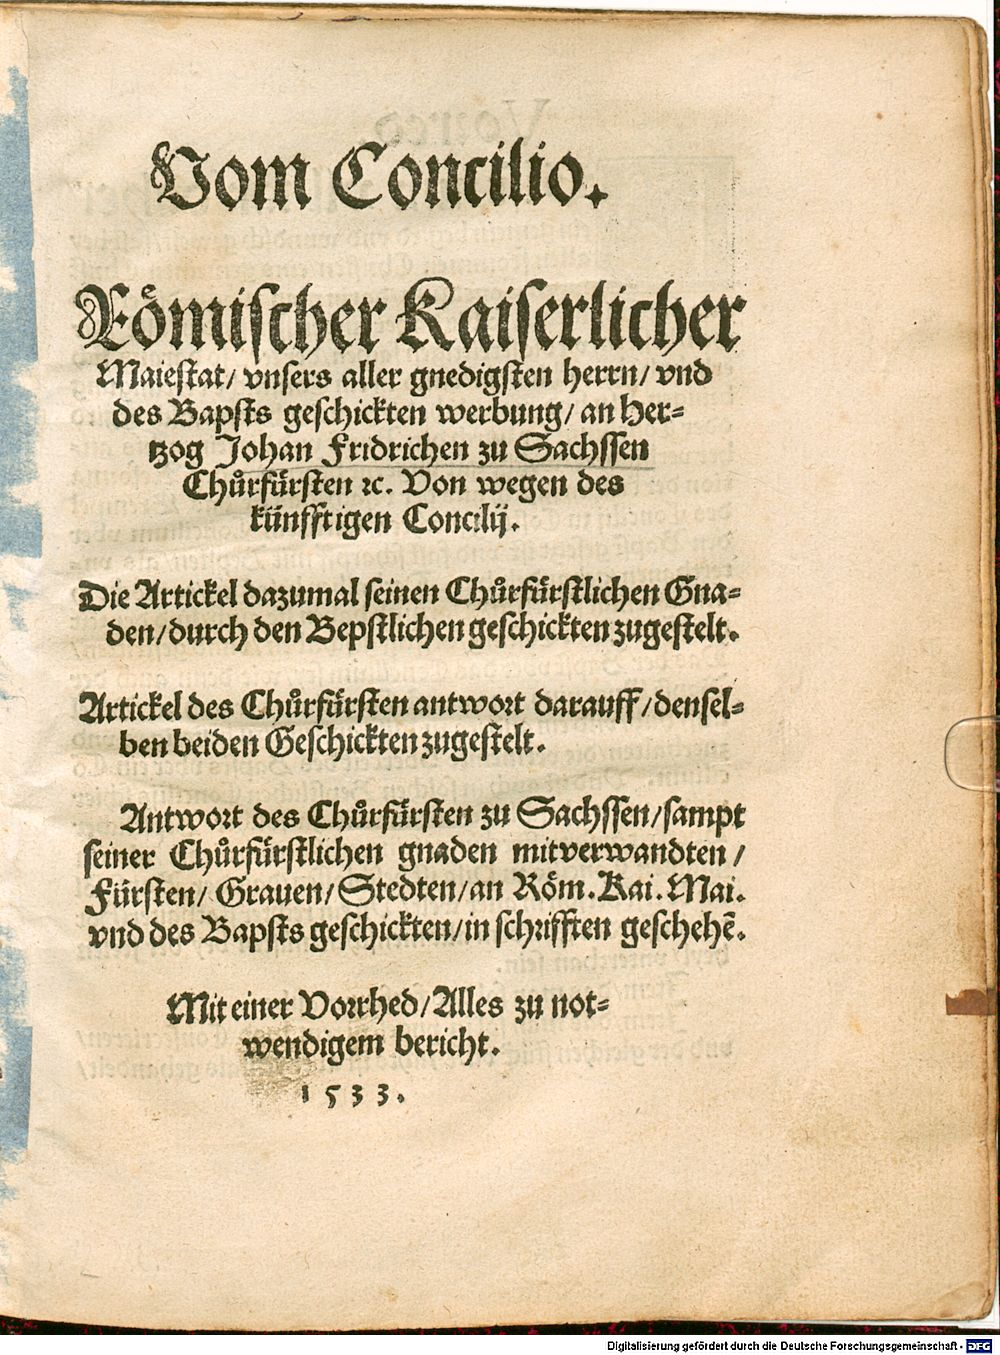 Vom Concilio.
Römischer Kaiserlicher
Maiestat/ vnsers aller gnedigsten herrn/ vnd
des Bapsts geschickten werbung/ an Her⸗
tzog Johan Fridrichen zu Sachssen
Chůrfürsten ꝛc. Von wegen des
künfftigen Concilij.
Die Artickel dazumal seinen Chůrfürstlichen Gna⸗
den/ durch den Bepstlichen geschickten zugestelt.
Artickel des Chůrfürsten antwort darauff/ densel⸗
ben beiden Geschickten zugestelt.
Antwort des Chůrfürsten zu Sachssen/ sampt
seiner Chůrfürstlichen gnaden mitverwandten /
Fürsten/ Grauen/ Stedten/ an Röm. Kai. Mai.
vnd des Bapsts geschickten/ in schrifften geschehẽ.
Mit einer Vorrhed/ Alles zu not⸗
wendigem bericht.
1533.
Digitalisierung gefördert durch die Deutsche Forschungsgemeinschaft - DFG